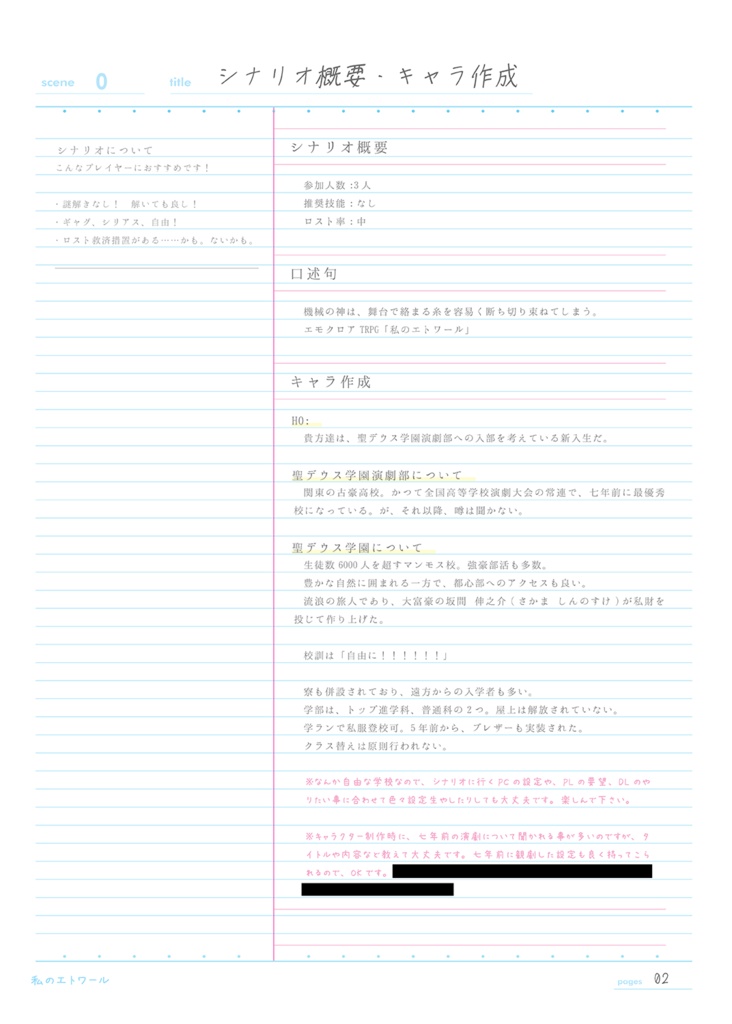 scene 0 title シナリオ概要・キャラ作成
シナリオについて
こんなプレイヤーにおすすめです！
・謎解きなし！　解いても良し！
・ギャグ、シリアス、自由！
・ロスト救済措置がある……かも。ないかも。
シナリオ概要
参加人数:3人
推奨技能：なし
ロスト率：中
口述句
機械の神は、舞台で絡まる糸を容易く断ち切り束ねてしまう。
エモクロアTRPG「私のエトワール」
キャラ作成
HO:
貴方達は、聖デウス学園演劇部への入部を考えている新入生だ。
聖デウス学園演劇部について
関東の古豪高校。かつて全国高等学校演劇大会の常連で、七年前に最優秀
校になっている。が、それ以降、噂は聞かない。
聖デウス学園について
生徒数6000人を超すマンモス校。強豪部活も多数。
豊かな自然に囲まれる一方で、都心部へのアクセスも良い。
流浪の旅人であり、大富豪の坂間　伸之介(さかま　しんのすけ)が私財を
投じて作り上げた。
校訓は「自由に！！！！！！」
寮も併設されており、遠方からの入学者も多い。
学部は、トップ進学科、普通科の2つ。屋上は解放されていない。
学ランで私服登校可。5年前から、ブレザーも実装された。
クラス替えは原則行われない。
※なんか自由な学校なので、シナリオに行くPCの設定や、PLの要望、DLのや
りたい事に合わせて色々設定生やしたりしても大丈夫です。楽しんで下さい。
※キャラクター制作時に、七年前の演劇について聞かれる事が多いのですが、タ
イトルや内容など教えて大丈夫です。七年前に観劇した設定も良く持ってこら
れるので、OKです。
私のエトワール
pages 02